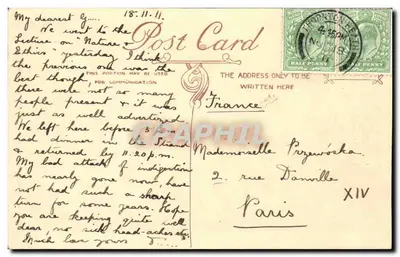 18.11.11.
My dearest G....
We went to the
Lecture on "Nature &
Ethics" yesterday I think
the previous one was the
best though,
there were not so many
people present & it was
just as well advertised.
We left here before 5 p.m.
had dinner in the Strand
& returned by 11.20 p.m.
My bad attack of indigestion
has nearly gone now, have
not had such a sharp
turn for some years. Hope
you are keeping quite well
dear, no sick head-aches etc.
Much love yours
Post Card
THIS PORTION MAY BE USED
FOR COMMUNICATION
THE ADDRESS ONLY TO BE
WRITTEN HERE
HALF PENNY
HALF PENNY
France
Mademoselle Przewóska
2. rue Danville
XIV
Paris